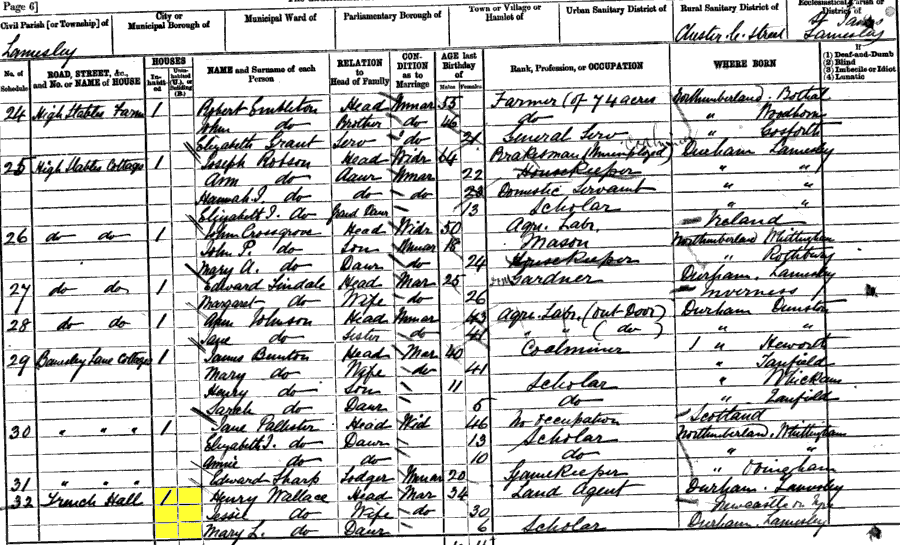 Page 6]
Civil Parish [or Township] of
City or
Municipal Borough of
Municipal Ward of
Parliamentary Borough of
Town or Village or
Hamlet of
Urban Sanitary District of
Rural Sanitary District of
Ecclesiastical Parish or
District of
Lamesley
Chester le Street
Lamesley
No. of
Schedule
ROAD, STREET, &c.,
and No. or NAME of HOUSE
HOUSES
In-
habit-
ed
Unin-
habited
(U.), or
Building
(B.)
NAME and Surname of each
Person
RELATION
to
Head of Family
CON-
DITION
as to
Marriage
AGE last
Birthday
of
Males
Females
Rank, Profession, or OCCUPATION
WHERE BORN
If
(1) Deaf-and-Dumb
(2) Blind
(3) Imbecile or Idiot
(4) Lunatic
24 High Stables Farm 1 Robert Embleton Head Unmar 55 Farmer (of 74 acres Northumberland. Bothal
John do Brother do 46 do " Woodhorn
Elizabeth Grant Serv do 21 General Serv " Gosforth
25 High Stables Cottages 1 Joseph Robson Head Widr 64 Brakesman (Unemployed) Durham Lamesley
Ann do Daur Unmar 22 Housekeeper " "
Hannah I. do do do 23 Domestic Servant " "
Elizabeth I. do Grand Daur 13 Scholar " "
26 do do 1 John Crossgrove Head Widr 50 Agri. Labr. Ireland
John P. do Son Unmar 18 Mason Northumberland Whittingham
Mary A. do Daur do 24 Housekeeper " Rothbury
27 do do 1 Edward Tindale Head Mar 25 Gardner Durham. Lamesley
Margaret do Wife do 26 Inverness
28 do do 1 Ann Johnson Head Unmar 43 Agri. Labr. (Out Door) Durham Dunston
Jane do Sister do 41 " " (do) " "
29 Bamsley Lane Cottages 1 James Bunton Head Mar 40 Coalminer " Heworth
Mary do Wife do 41 " Tanfield
Henry do Son 11 Scholar " Whickham
Sarah do Daur 5 do " Tanfield
30 " " " 1 Jane Pallister Head Wid 46 No Occupation Scotland
Elizabeth I. do Daur 13 Scholar Northumberland. Whittingham
Annie do do 10 do " "
31 " " " Edward Sharp Lodger Unmar 20 Gamekeeper " Ovingham
32 Trench Hall 1 Henry Wallace Head Mar 34 Land Agent Durham. Lamesley
Jessie do Wife do 30 Newcastle on Tyne
Mary L. do Daur 6 Scholar Durham. Lamesley